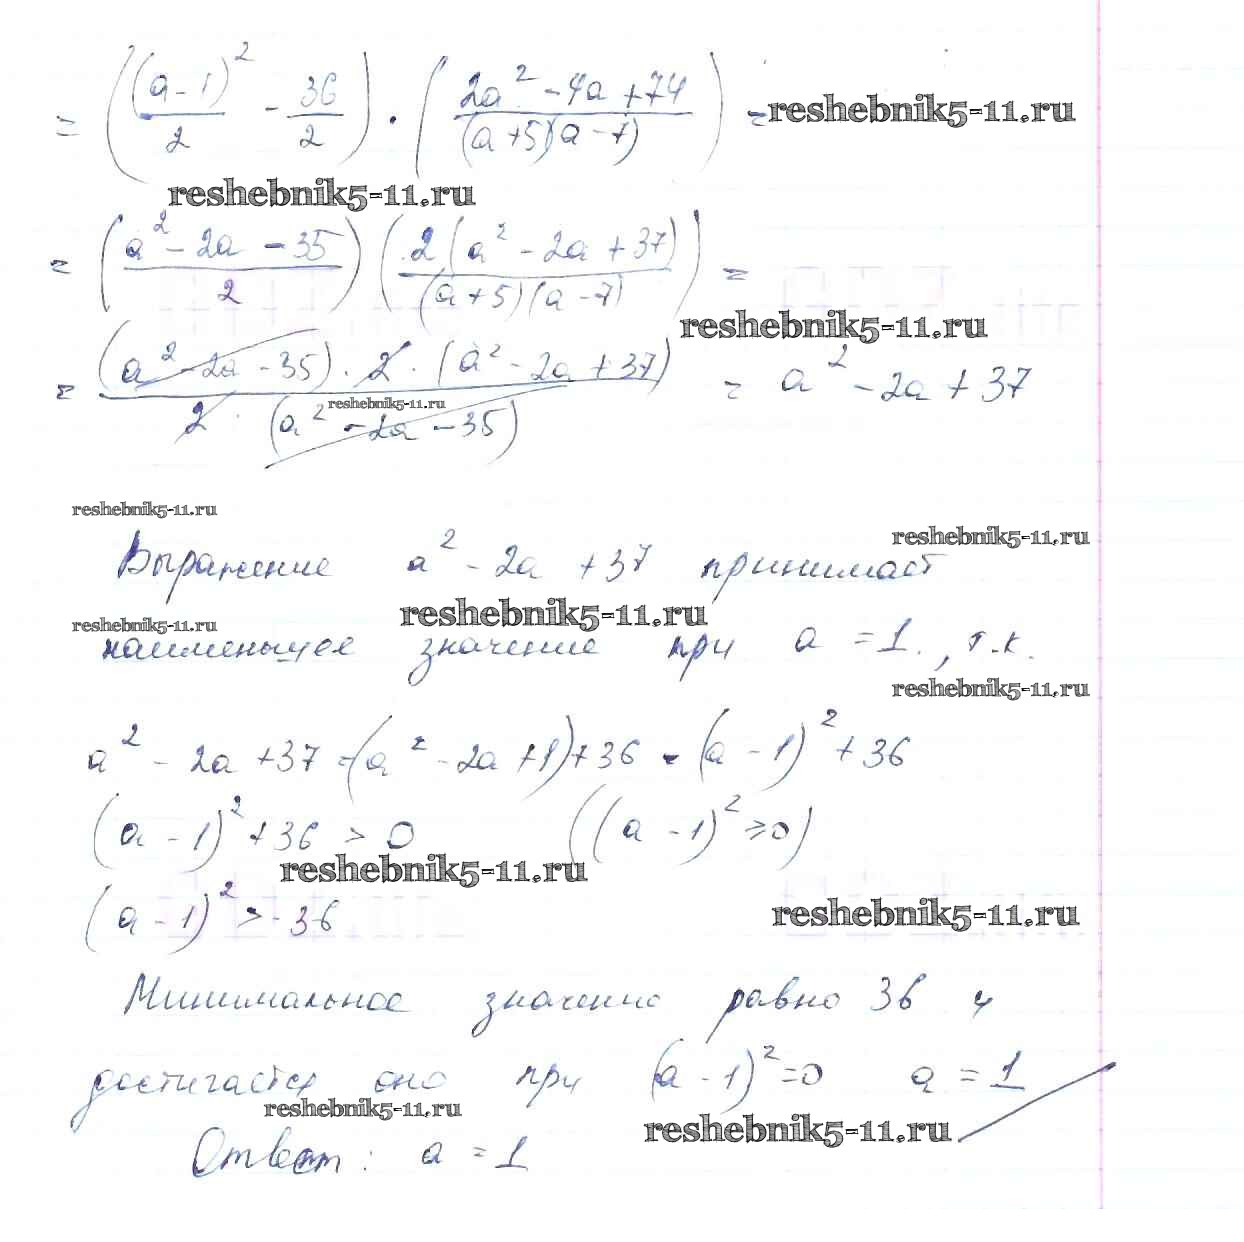 = ((a-1)²/2 - 36/2) · ((2a² - 4a + 74)/((a+5)(a-7))) = reshebnik5-11.ru
reshebnik5-11.ru
= ((a² - 2a - 35)/2) (2(a² - 2a + 37)/((a+5)(a-7))) =
reshebnik5-11.ru
= ((a² - 2a - 35) · 2 · (a² - 2a + 37))/(2 · (a² - 2a - 35)) = a² - 2a + 37
reshebnik5-11.ru
reshebnik5-11.ru
reshebnik5-11.ru
Выражение a² - 2a + 37 принимает
reshebnik5-11.ru
reshebnik5-11.ru
наименьшее значение при a = 1., т.к.
reshebnik5-11.ru
a² - 2a + 37 = (a² - 2a + 1) + 36 = (a - 1)² + 36
(a - 1)² + 36 > 0 ((a - 1)² ≥ 0)
reshebnik5-11.ru
(a - 1)² > -36
reshebnik5-11.ru
Минимальное значение равно 36 и
достигается оно при (a - 1)² = 0 a = 1
reshebnik5-11.ru
reshebnik5-11.ru
Ответ: a = 1